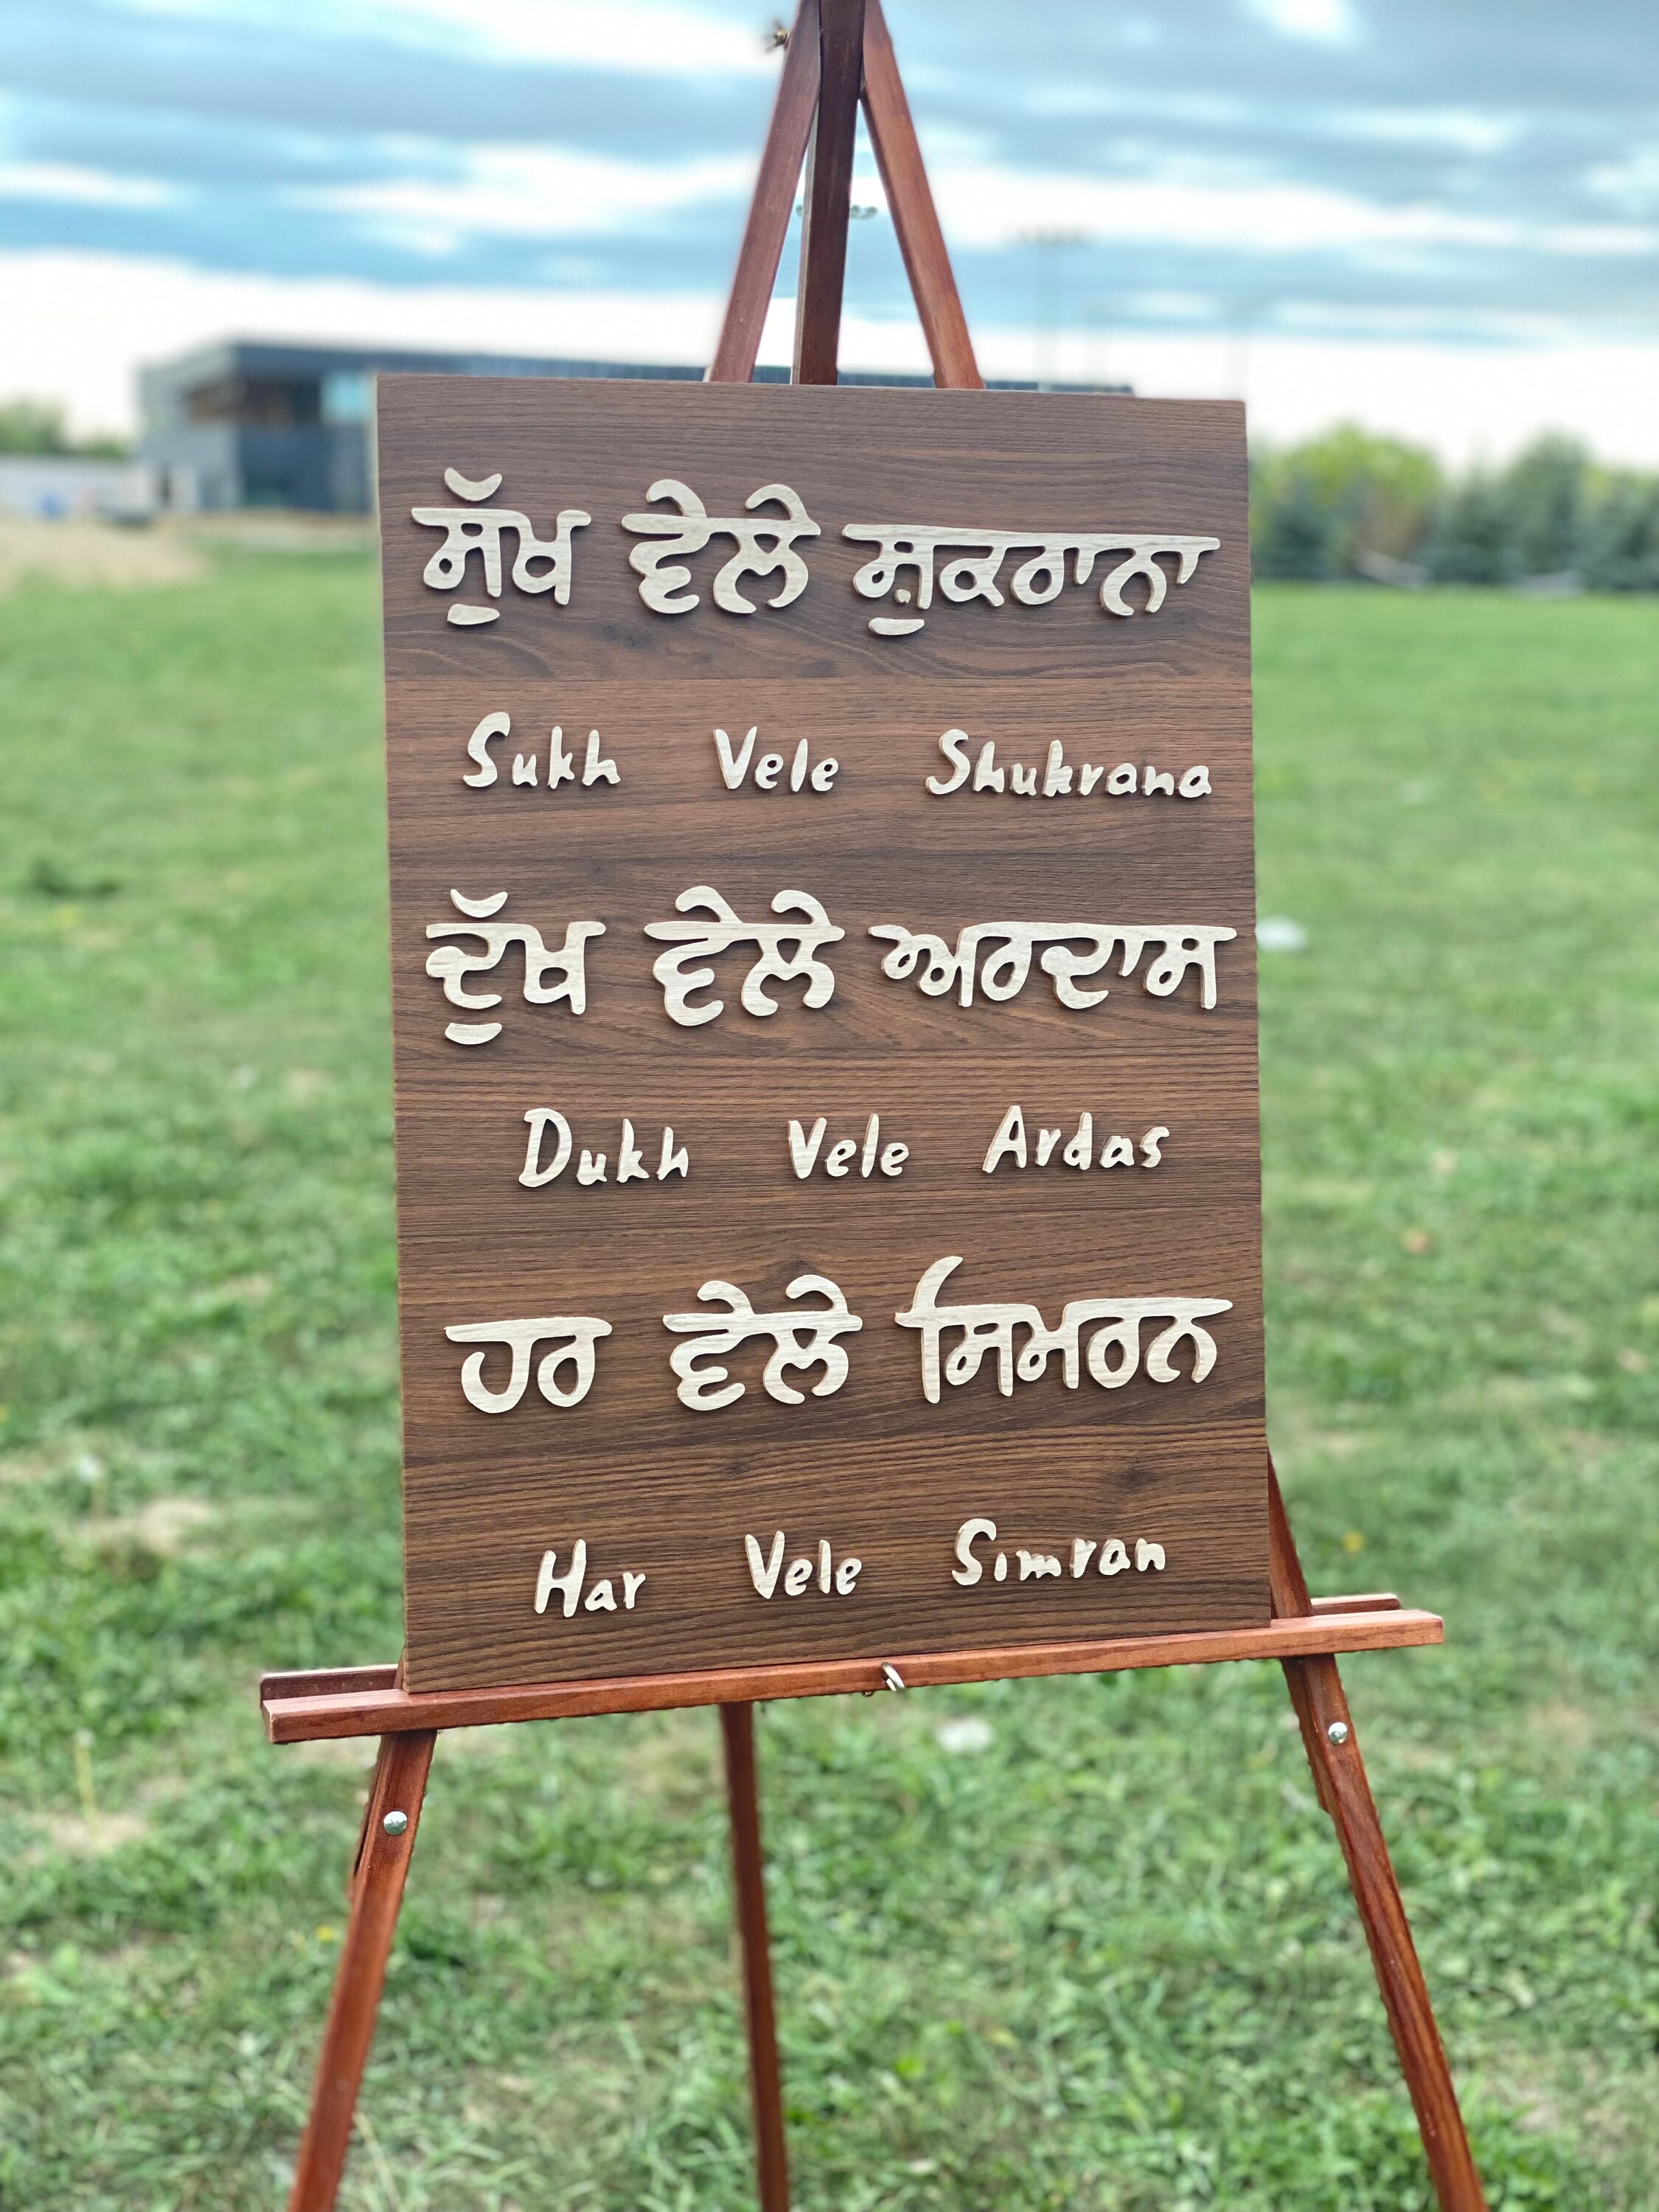 ਸੁੱਖ ਵੇਲੇ ਸ਼ੁਕਰਾਨਾ
Sukh Vele Shukrana
ਦੁੱਖ ਵੇਲੇ ਅਰਦਾਸ
Dukh Vele Ardas
ਹਰ ਵੇਲੇ ਸਿਮਰਨ
Har Vele Simran